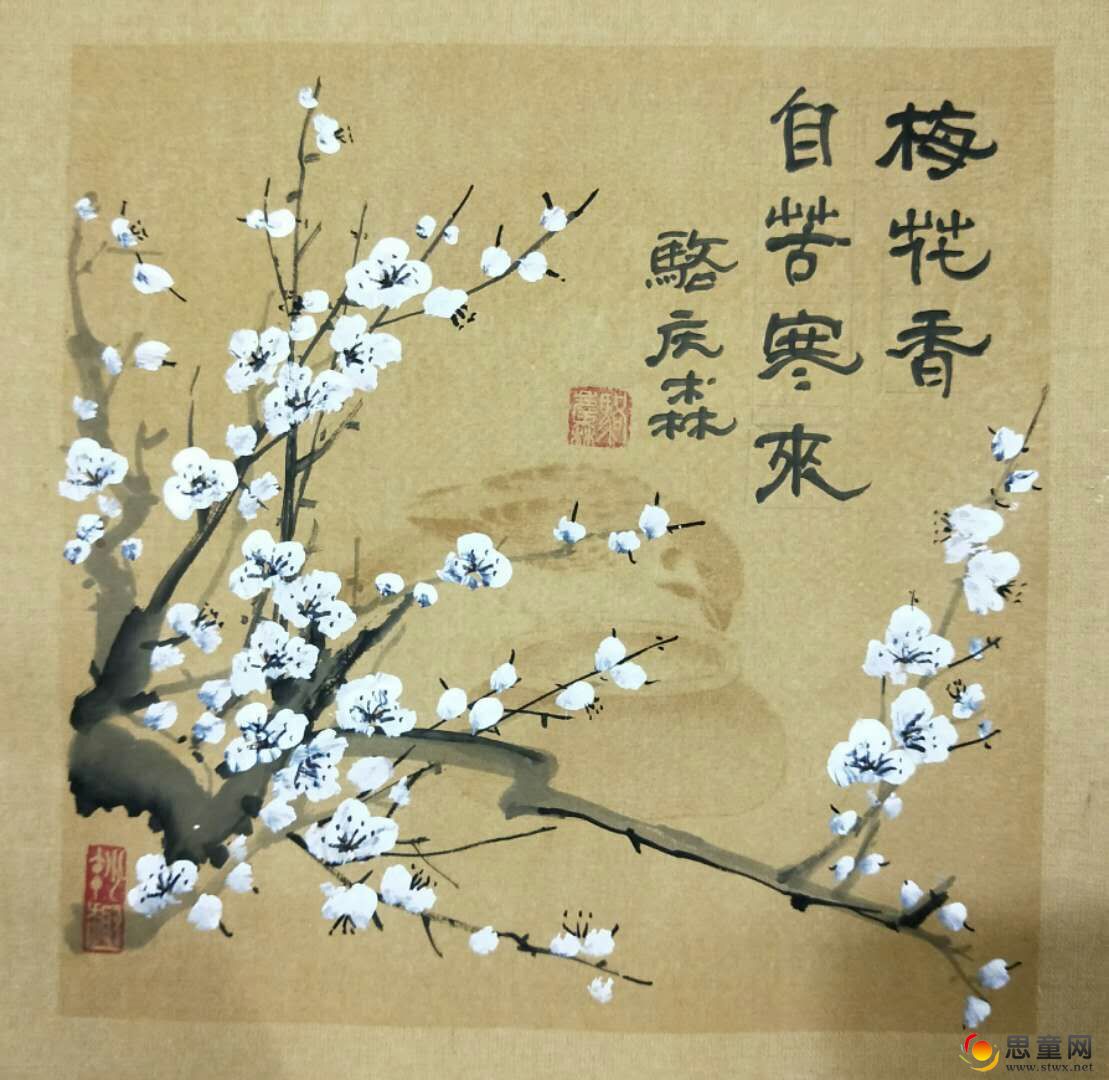 梅花香
自苦寒來
駱庆森
思童网
www.stwx.net